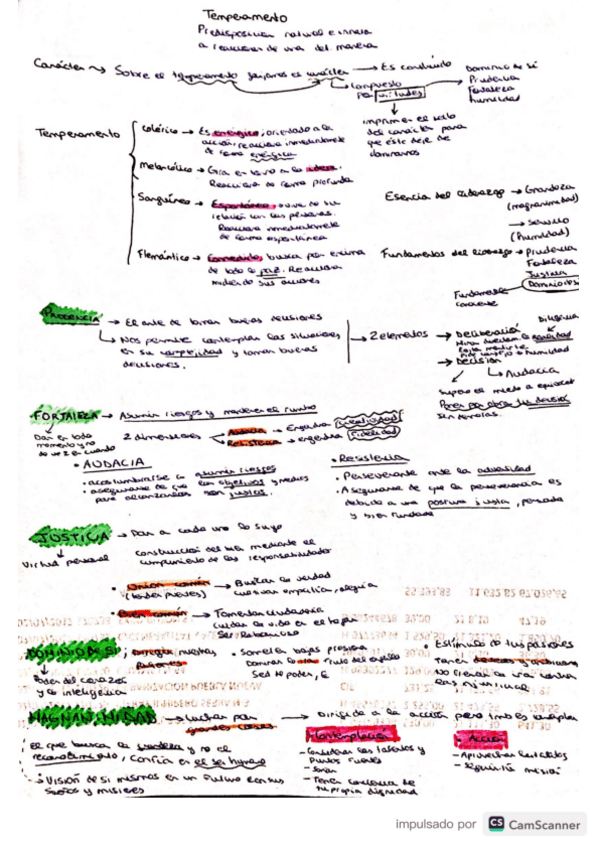 Temperamento
Predisposición natural e innata
a reaccionar de una det. manera
Carácter → Sobre el temperamento forjamos el carácter → Es construido
Compuesto por virtudes
Dominio de sí
Prudencia
Fortaleza
humildad
imprimen el sello
del carácter para
que éste deje de
dominarnos
Temperamento
Colérico → Es enérgico; orientado a la
acción, reacciona inmediatamente
de forma enérgica
Melancólico → Gira en torno a las ideas.
Reacciona de forma profunda
Sanguíneo → Espontáneo; vive de su
relación con las personas.
Reacciona inmediatamente
de forma espontánea
Flemático → Comedido, busca por encima
de todo la paz. Reacciona
midiendo sus acciones
Esencia del liderazgo → Grandeza
(magnanimidad)
→ Servicio
(humildad)
Fundamentos del liderazgo → Prudencia
Fortaleza
Justicia
Dominio de sí
Fundamente
PRUDENCIA → El arte de tomar buenas decisiones
Nos permite contemplar las situaciones
en su complejidad y tomar buenas
decisiones.
→ 2 elementos → Deliberación
Mirar directam. la realidad
→ Decisión
→ Audacia
Supera el miedo a equivocar
Poner por obra las decisiones
sin demoras.
FORTALEZA → Asumir riesgos y mantener el rumbo
Dar en todo
momento y no
de vez en cuando
2 dimensiones → Audacia → Engendra creatividad
Resistencia → engendra fidelidad
• AUDACIA
• acostumbrarse a asumir riesgos
• asegurarse de que los objetivos y medios
para alcanzarlos son justos.
• Resistencia
• Perseverante ante la adversidad
• Asegurarse de que la perseverancia es
debido a una postura justa, pensada
y bien fundada
JUSTICIA → Dar a cada uno lo suyo
Virtud personal
construcción del bien mediante el
cumplimiento de las responsabilidades
• Unión común → Buscar la verdad
cultivar empatía, alegría
• Bien común → Tomar en ciudadanía
cuidar la vida en el hogar
DOMINIO DE SÍ, energía nuestras
pasiones
Poder del corazón
y la inteligencia
• Someter bajas pasiones
Sed de poder,
• Estímulo de tus pasiones
MAGNANIMIDAD → Luchar por
grandes cosas
→ Dirigida a la acción
el que busca la grandeza y no el
reconocimiento, confía en el ser humano
• Visión de sí mismos en un futuro con sus
sueños y misiones
• Contemplación
- Considerar los talentos y
puntos fuertes
- Soñar
- Tener conciencia de
tu propia dignidad
• Acción
- Aprovechar los talentos
- Seguir tu misión
impulsado por CS CamScanner